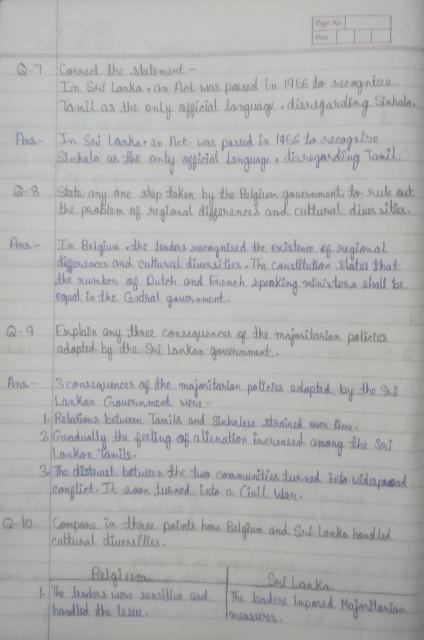 Page No.
Date
Q-7 Correct the statement -
In Sri Lanka, an Act was passed in 1956 to recognize
Tamil as the only official language, disregarding Sinhala.
Ans- In Sri Lanka, an Act was passed in 1956 to recognize
Sinhala as the only official language, disregarding Tamil.
Q-8 State any one step taken by the Belgium government to rule out
the problem of regional differences and cultural diversities.
Ans- In Belgium, the leaders recognised the existence of regional
differences and cultural diversities. The constitution states that
the number of Dutch and French speaking ministers shall be
equal in the Central government.
Q-9 Explain any three consequences of the majoritarian policies
adopted by the Sri Lankan government.
Ans- 3 consequences of the majoritarian policies adopted by the Sri
Lankan Government were-
1. Relations between Tamils and Sinhalese strained over time.
2. Gradually the feeling of alienation increased among the Sri
Lankan Tamils.
3. The distrust between the two communities turned into widespread
conflict. It soon turned into a Civil War.
Q-10 Compare in three points how Belgium and Sri Lanka handled
cultural diversities.
Belgium Sri Lanka
1. The leaders were sensitive and The leaders imposed Majoritarian
handled the Issue. measures.